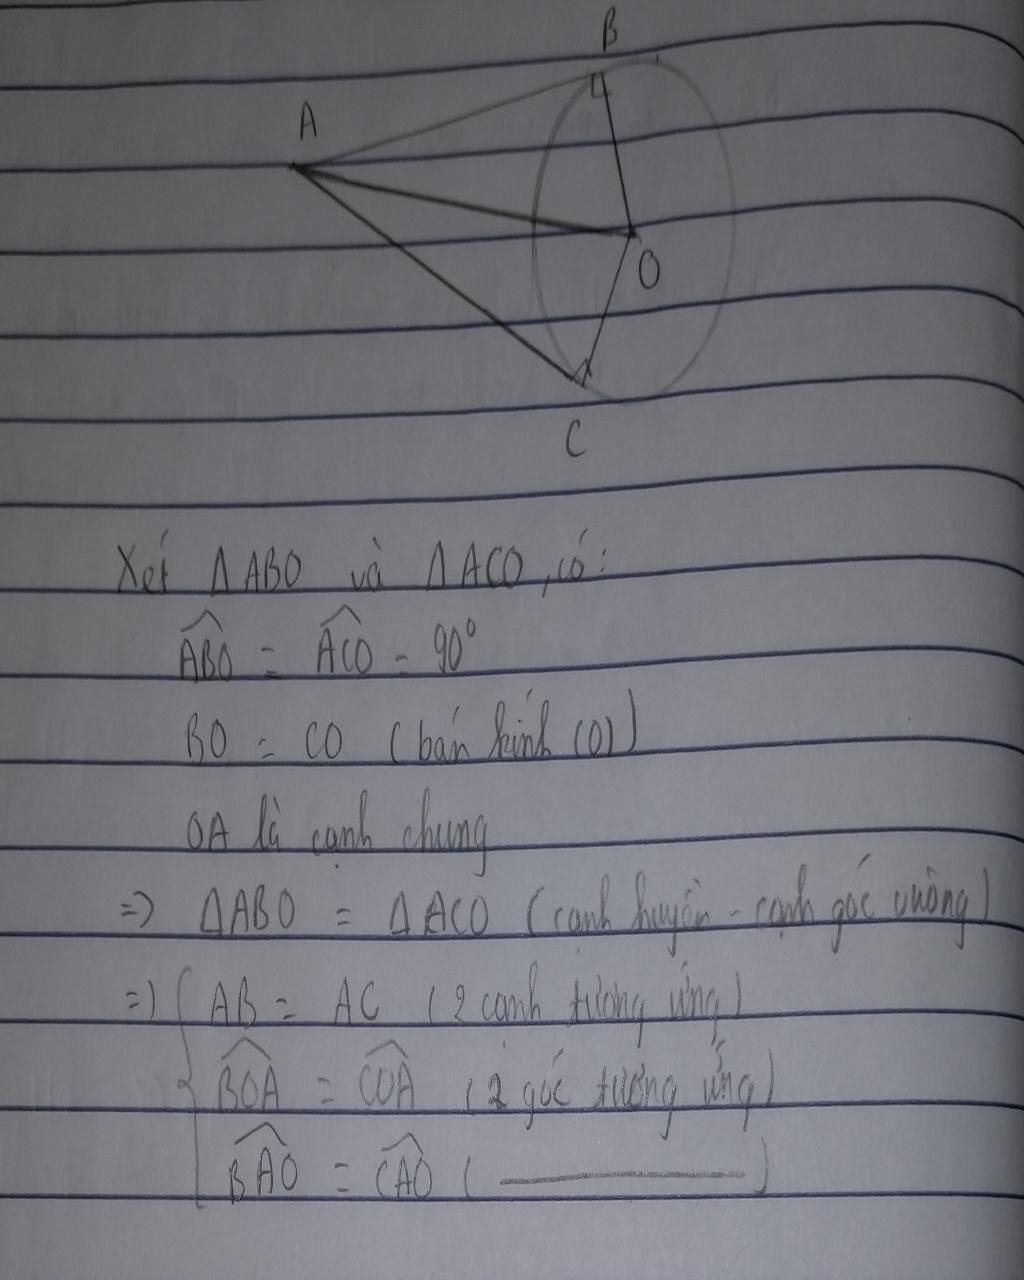 B
A
O
C
Xét ΔABO và ΔACO, có:
$\widehat{ABO}$ = $\widehat{ACO}$ = 90°
BO = CO (bán kính (O))
OA là cạnh chung
=> ΔABO = ΔACO (cạnh huyền - cạnh góc vuông)
=> { AB = AC (2 cạnh tương ứng)
$\widehat{BOA}$ = $\widehat{COA}$ (2 góc tương ứng)
$\widehat{BAO}$ = $\widehat{CAO}$ (———)